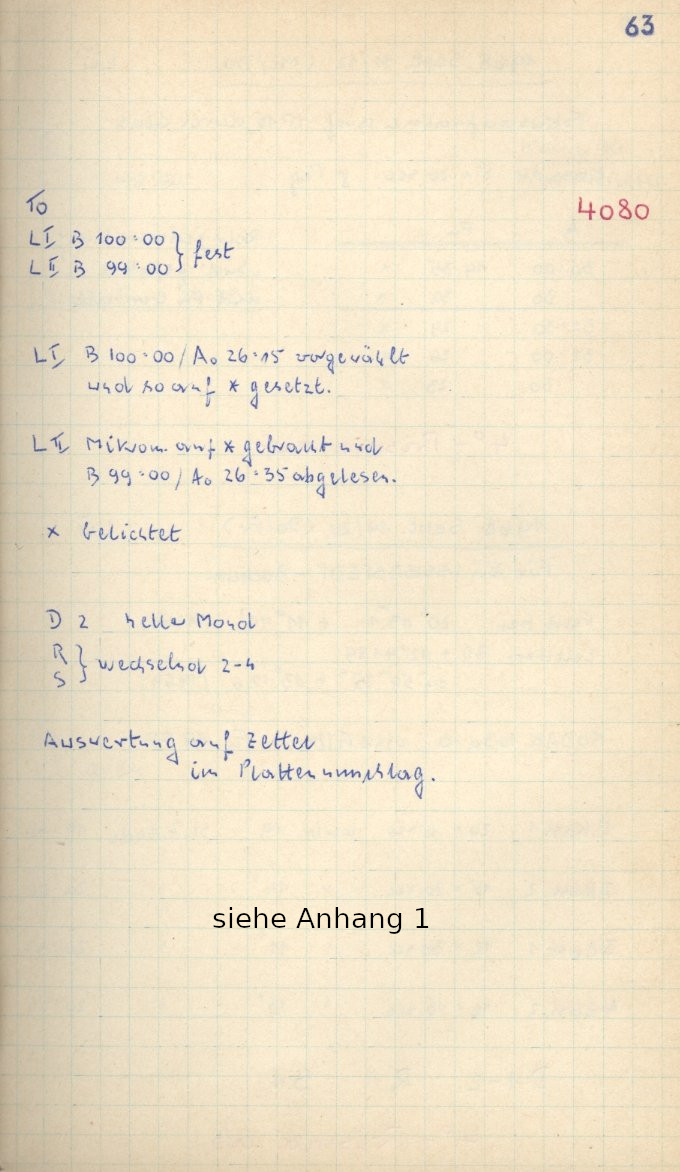 63
To
4080
L I B 100:00 } fest
L II B 99:00
L I B 100:00 / A₀ 26:15 vorgewählt
und so auf * gesetzt.
L II Mikrom. auf * gebracht und
B 99:00 / A₀ 26:35 abgelesen.
* belichtet
D 2 heller Mond
R } wechselnd 2-4
S
Auswertung auf Zettel
im Plattenumschlag.
siehe Anhang 1